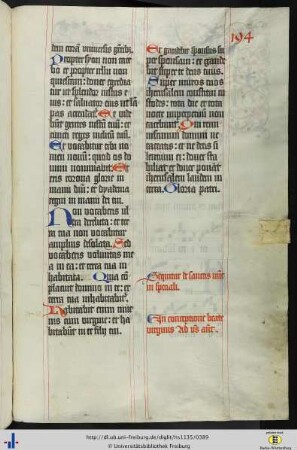 194
dem coram universis gentibus
Propter syon non tace
bo et propter ierusalem non
quiescam: donec egredia
tur ut splendor iustus e
ius: et salvator eius ut lam
pas accendatur. Et vide
bunt gentes iustum tuum: et
cuncti reges inclitum tuum.
Et vocabitur tibi no
men novum: quod os do
mini nominavit. Et
eris corona glorie in
manu domini: et dyadema
regni in manu dei tui.
Non vocaberis ul
tra derelicta: et ter
ra tua non vocabitur
amplius desolata. Sed
vocaberis voluntas me
a in ea: et terra tua in
habitata. Quia com
placuit domino in te: et ter
ra tua inhabitabitur.
Habitabit enim iuve
nis cum virgine: et ha
bitabunt in te filii tui.
Et gaudebit sponsus su
per sponsam: et gaude
bit super te deus tuus.
Super muros tuos
iherusalem constitui cu
stodes: tota die et tota
nocte imperpetuum non
tacebunt. Qui remi
niscimini domini ne
taceatis: et ne detis si
lentium ei: donec sta
biliat et donec ponat
iherusalem laudem in
terra. Gloria patri.
Sequitur de sanctis
in speciali.
In conceptione beate
virginis
http://dl.ub.uni-freiburg.de/diglit/hs1135/0389
© Universitätsbibliothek Freiburg
Baden-Württemberg